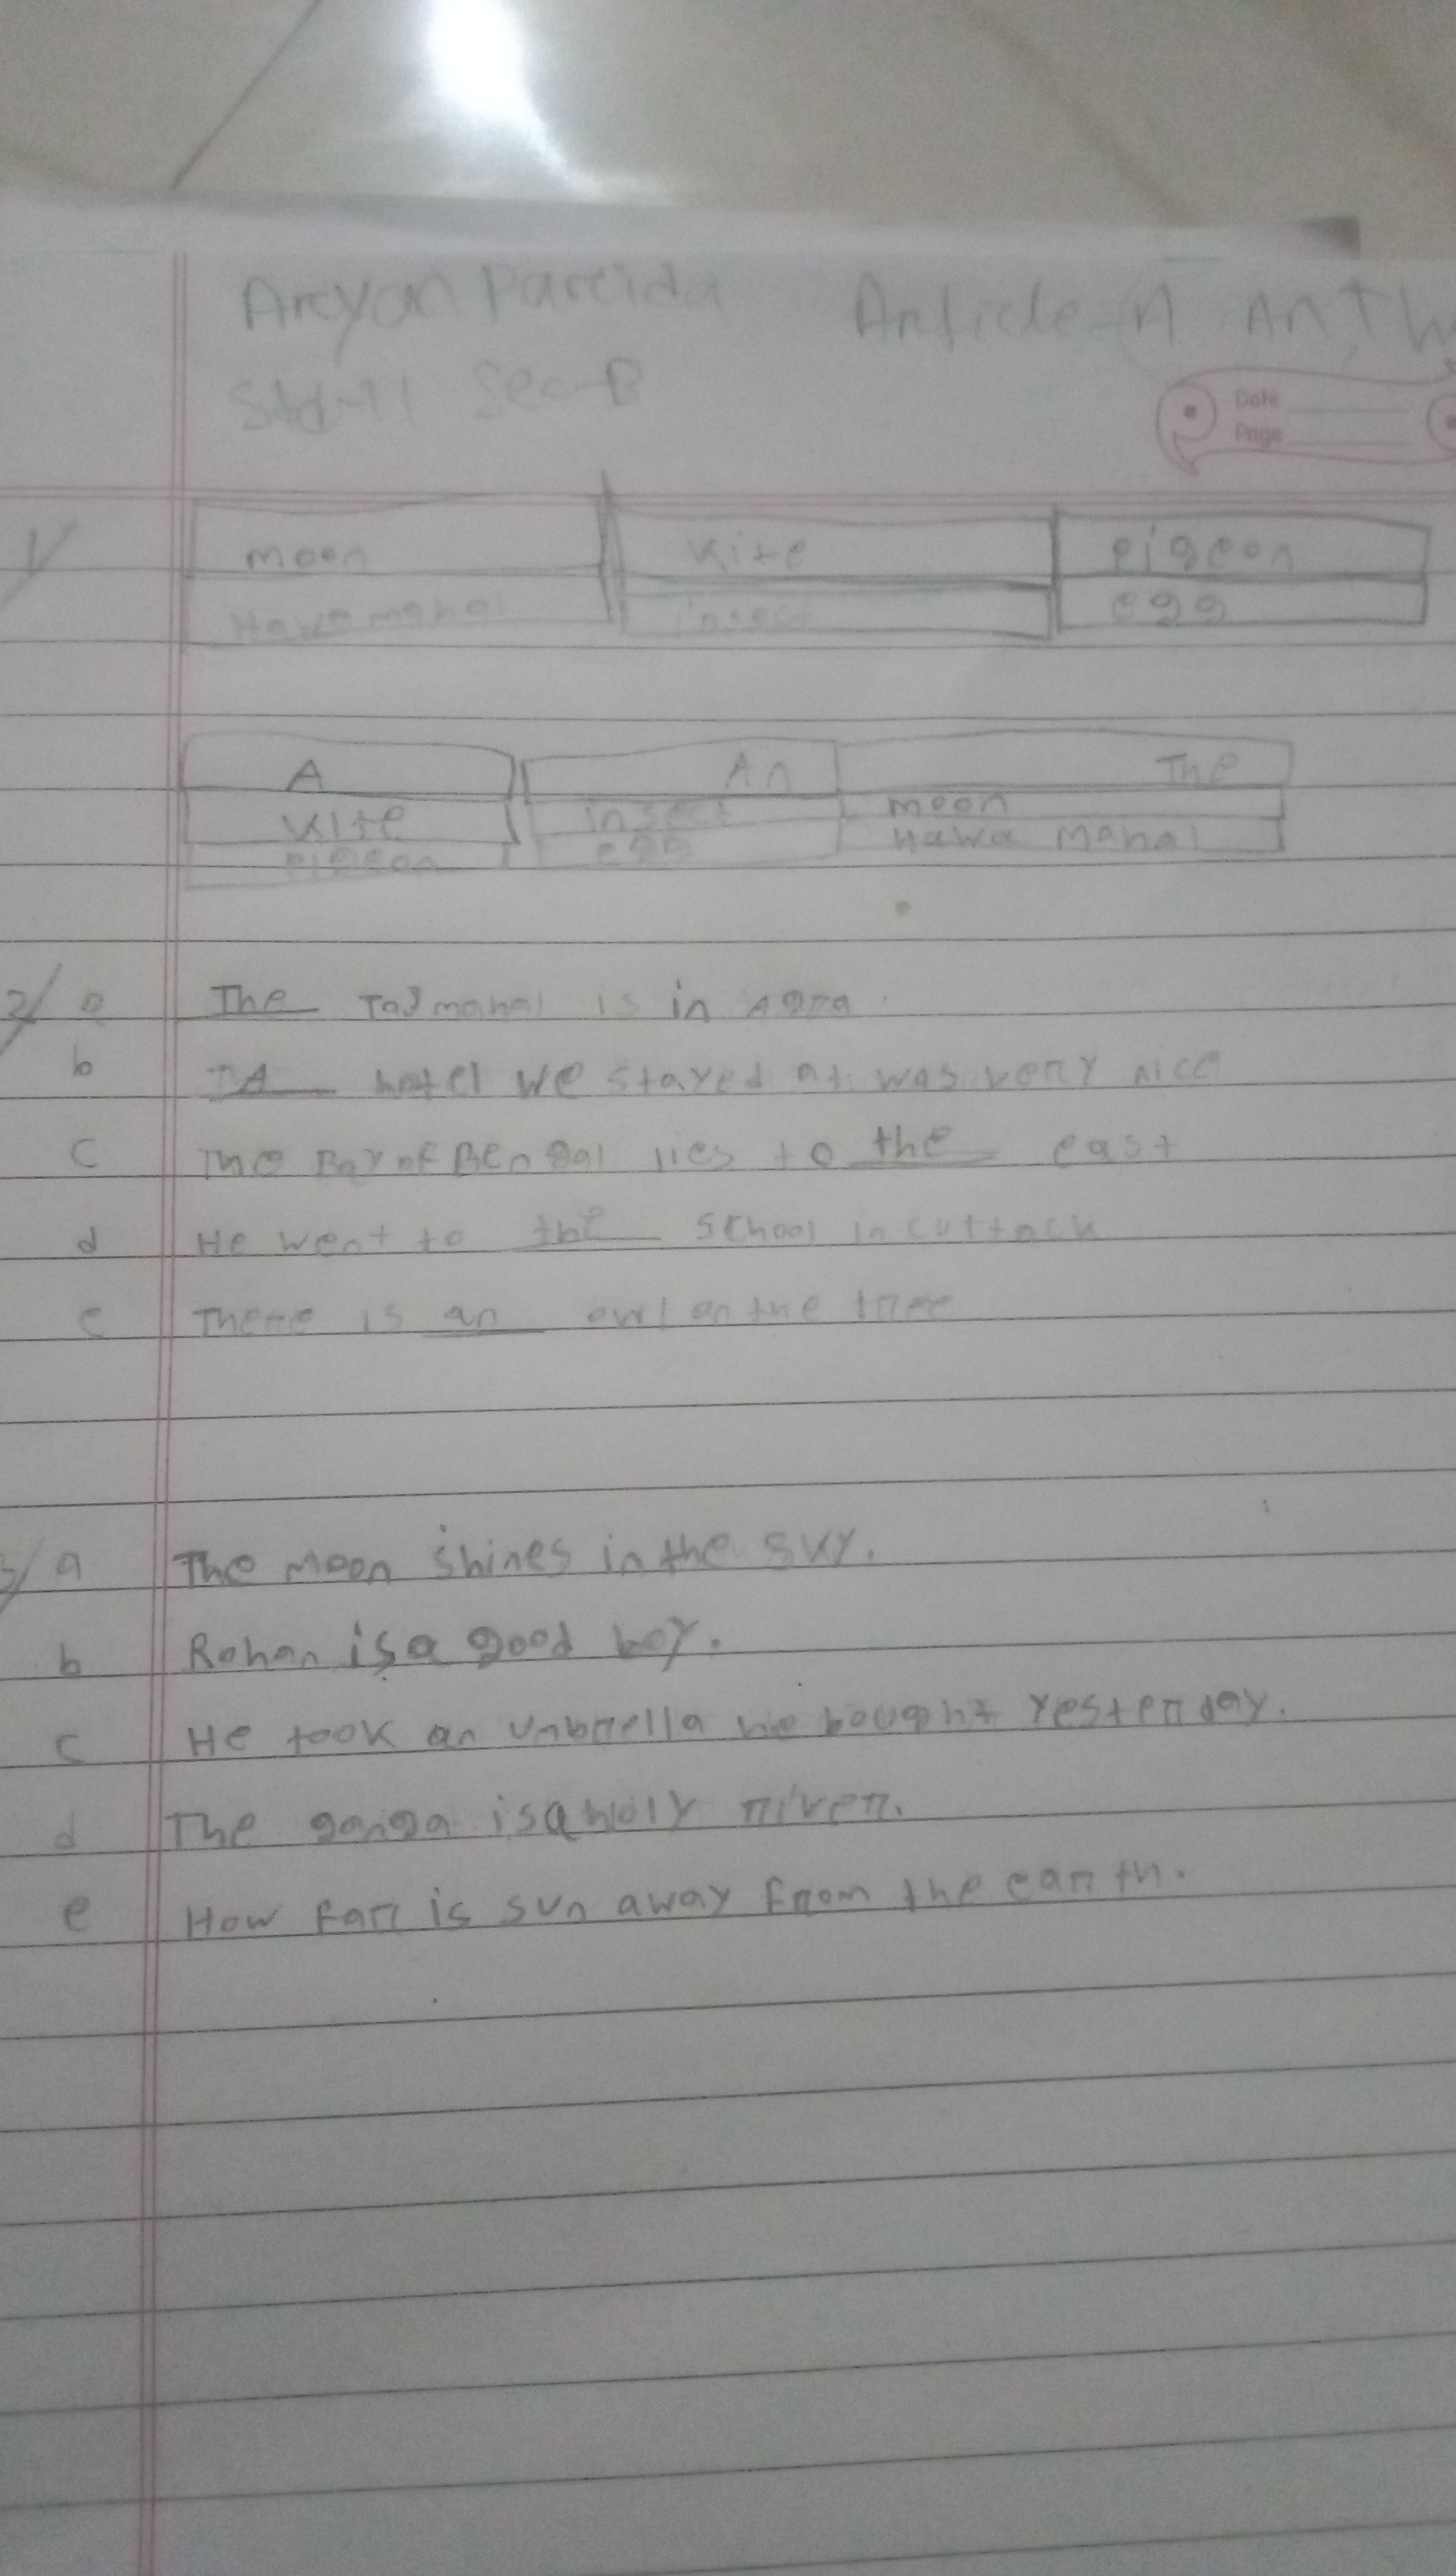 Aryan Parida Article - A An, Th
Std-II Sec-B
Date
Page
1/ moon kite pigeon
Hawa mahal insect egg
A An The
kite insect moon
pigeon egg Hawa Mahal
2/ a The Tajmahal is in Agra.
b A hotel we stayed at was very nice
c The Bay of Bengal lies to the east
d He went to the school in cuttack
e There is an owl on the tree
a The moon shines in the sky.
b Rohan is a good boy.
c He took an unbrella he bought yesterday.
d The ganga is a holy river.
e How far is sun away from the earth.